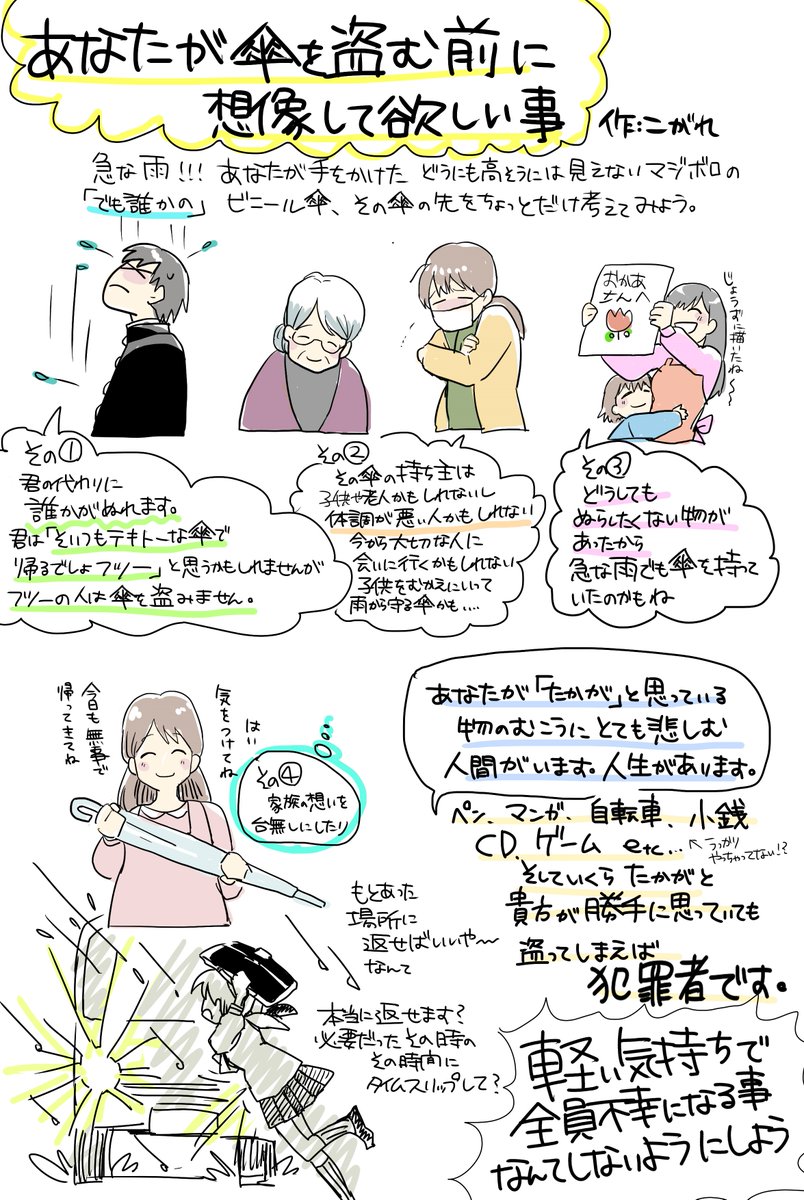 あなたが傘を盗む前に
想像して欲しい事
作:こがれ
急な雨!!! あなたが手をかけた どうにも高そうには見えないマジボロの
「でも誰かの」 ビニール傘、その傘の先をちょっとだけ考えてみよう。
おかあ
さんへ
じょうずに描いたね〜〜
その①
君の代わりに
誰かがぬれます。
君は「そいつもテキトーな傘で
帰るでしょフツー」と思うかもしれませんが
フツーの人は傘を盗みません。
その②
その傘の持ち主は
子供や老人かもしれないし
体調が悪い人かもしれない
今から大切な人に
会いに行くかもしれない
子供をむかえにいいて
雨から守る傘かも‥‥
その③
どうしても
ぬらしたくない物が
あったから
急な雨でも傘を持って
いたのかもね
はい
気をつけてね
今日も無事で
帰ってきてね
その④
家族の想いを
台無しにしたり
あなたが「たかが」と思っている
物のむこうにとても悲しむ
人間がいます。人生があります。
ペン、マンガ、自転車、小銭
CD、ゲーム etc…
←うっかり
やっちゃってない!?
そしていくら たかがと
貴方が勝手に思っていても
盗ってしまえば
犯罪者です。
もとあった
場所に
返せばいいや〜
なんて
本当に返せます?
必要だったその時の
その時間に
タイムスリップして?
軽い気持ちで
全員不幸になる事
なんてしないようにしよう